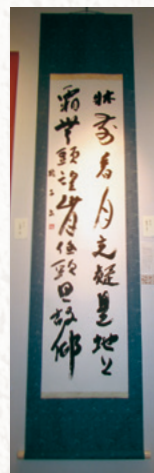 牀前看月光疑是地上
霜舉頭望山月低頭思故鄉